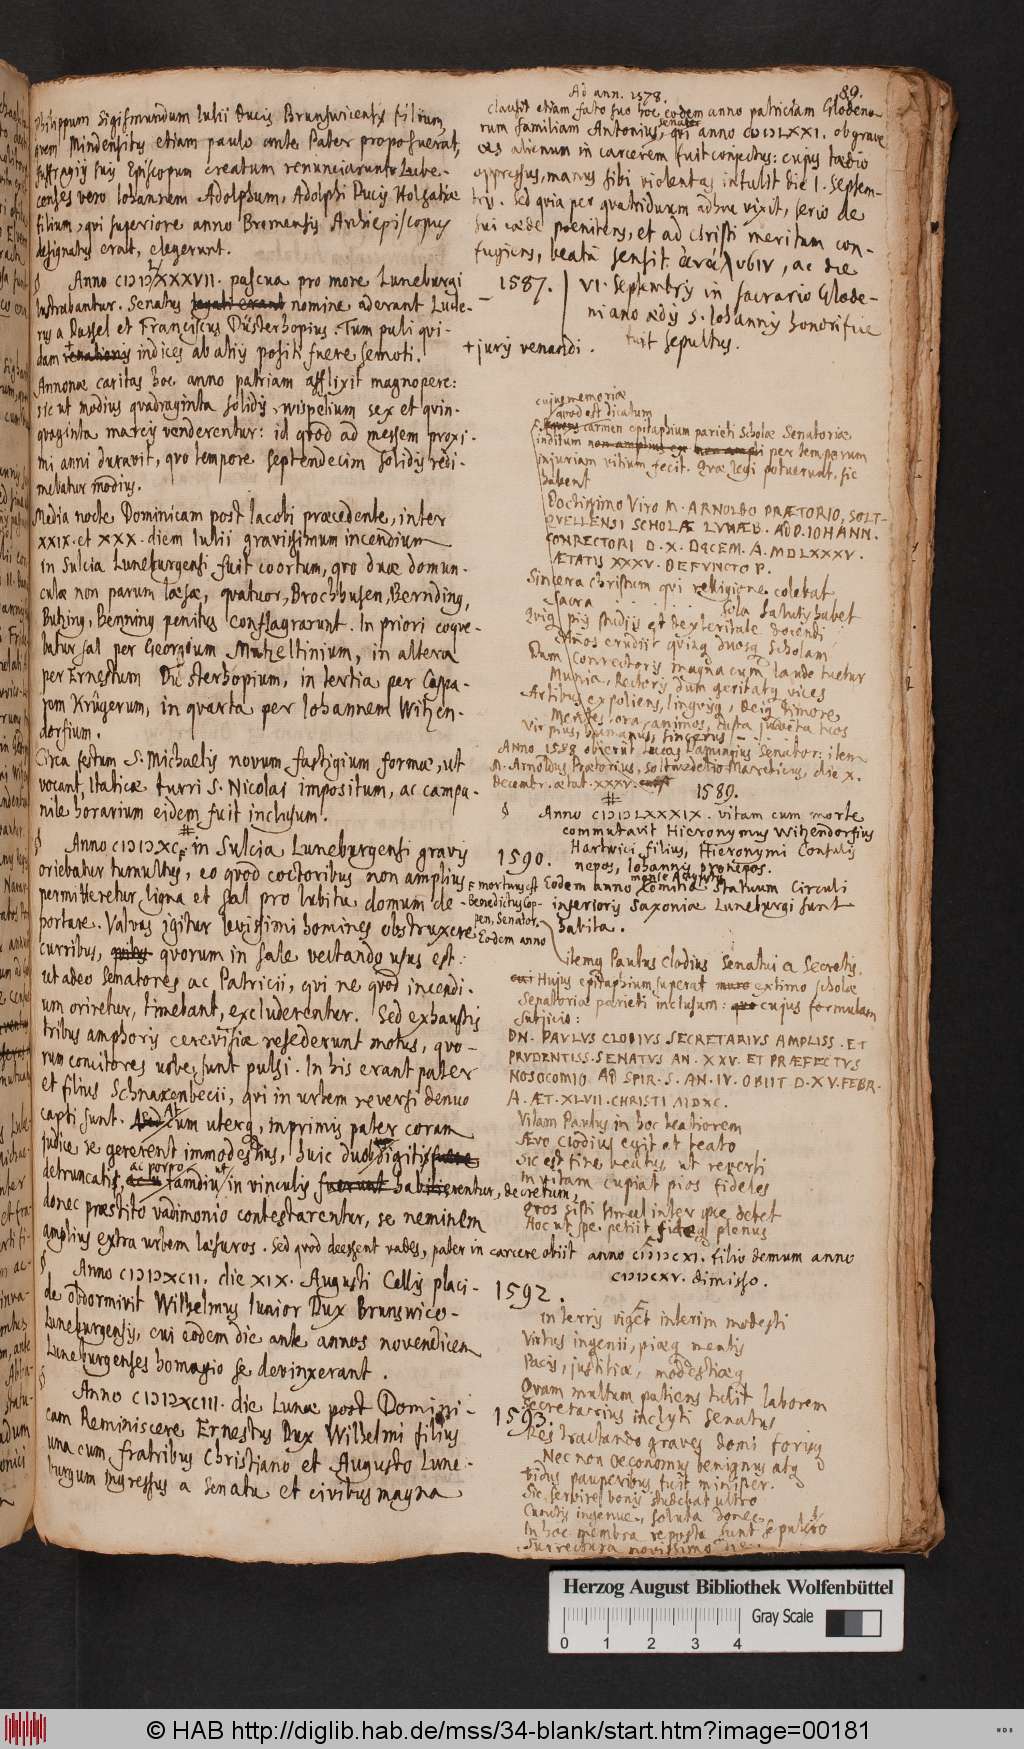 89.
Philippum Sigismundum Iulii Ducis Brunsvicensis filium,
quem Mindensis etiam paulo ante Pater proposuerat,
suffragiis suis Episcopum creatum renunciarunt. Lube-
censes vero Iohannem Adolphum, Adolphi Ducis Holsatiæ
filium, qui superiore anno Bremensis Archiepiscopus
designatus erat, elegerunt.
Anno CIↃIↃLXXXVII. pascua pro more Luneburgi
lustrabantur. Senatus legati erant nomine aderant Lude-
rus a Dassel et Franciscus Düsterhopius. Tum puli qui-
dam + venationis indices ab aliis positi fuere semoti.
Annonæ caritas hoc anno patriam afflixit magnopere:
sic ut modius quadraginta solidis, wispelium sex et quin-
quaginta marcis venderentur: id quod ad messem proxi-
mi anni duravit, quo tempore septendecim solidis redi-
mebatur modius.
Media nocte Dominicam post Iacobi præcedente, inter
XXIX. et XXX. diem Iulii gravissimum incendium
in Sulcia Luneburgensi fuit coortum, quo duæ domun-
culæ non parum læsæ, quatuor, Brochhusen, Bernding,
Butzing, Benning penitus conflagrarunt. In priori coque-
batur sal per Georgium Mutzeltinium, in altera
per Ernestum Düsterhopium, in tertia per Caspa-
rum Krügerum, in quarta per Iohannem Witzen-
dorfium.
Circa festum S. Michaelis novum fastigium formæ, ut
vocant, Italicæ turri S. Nicolai impositum, ac campa-
nile horarium eidem fuit inclusum.
Anno CIↃIↃXC. in Sulcia Luneburgensi gravis
oriebatur tumultus, eo quod coctoribus non amplius
permitteretur, ligna et sal pro lubitu domum de-
portare. Valvas igitur levissimi homines obstruxere
curribus, quibus quorum in sale vectando usus est:
ut adeo Senatores ac Patricii, qui ne quod incendi-
um oriretur, timebant, excluderentur. Sed exhaustis
tribus amphoris cerevisiæ resederunt motus, quo-
rum concitores urbe sunt pulsi. In his erant pater
et filius Schnakenbecii, qui in urbem reversi denuo
capti sunt. Sed At cum uterq, inprimis pater coram
judice se gererent immodestius, huic duobus digitis fuere
detruncatis, ac u ac porro tamdiu ut in vinculis fuerunt habiti haberentur, decretum,
donec præstito vadimonio contestarentur, se neminem
amplius extra urbem læsuros. Sed quod deessent vades, pater in carcere obiit anno CIↃIↃCXI. filio demum anno
CIↃIↃCXV. dimisso.
Anno CIↃIↃXCII. die XIX. Augusti Cellis placi-
de obdormivit Wilhelmus Iunior Dux Brunsvico-
Luneburgensis, cui eodem die ante annos novendecim
Luneburgenses homagio se devinxerant.
Anno CIↃIↃXCIII. die Lunæ post Domini-
cam Reminiscere Ernestus Dux Wilhelmi filius
una cum fratribus Christiano et Augusto Lune-
burgum ingressus a senatu et civibus magna
Ad ann. 1578.
clausit etiam fato suo hoc eodem anno patriciam Glodeno-
rum familiam Antonius, senator qui anno CIↃIↃLXXI. ob grave
æs alienum in carcerem fuit conjectus: cujus tædio
oppressus, manus sibi violentas intulit die I. Septem-
bris. Sed quia per quatriduum adhuc vixit, serio de
sui cæde poenitens, et ad Christi meritum con-
fugiens, beata sensit, ac die
VI. Septembris in sacrario Glode-
niano ædis S. Iohannis honorifice
fuit sepultus.
1587.
+ juris venandi.
cujus memoriæ
quod est dicatum
carmen epitaphium parieti Scholæ Senatoriæ
inditum non amplius per temporum
injuriam vitium fecit. Quæ legi potuerunt, sic
habent
Doctissimo Viro M. ARNOLDO PRÆTORIO, SOLT-
QVELLENSI SCHOLÆ LVNÆB. AD D. IOHANN.
CONRECTORI D. X. DECEM. A. MDLXXXV.
ÆTATIS XXXV. DEFVNCTO P.
Sincera Christum qui religione colebat
Sacra . . . . . . sola salutis habet
Quiq piis studiis et dexteritate docendi
Annos erudiit quinq duosq scholam
Dum Conrectoris magna cum laude tuetur
Munia, Rectoris dum geritatq vices
Artibus expoliens, linguisq, Deiq timore
Mentes, ora, animos, juventa tuos
Vir pius, humanus, sincerus - . .
Anno 1588 obierunt Lucas Daningius Senator: item
M. Arnoldus Prætorius, Soltwedelio-Marchicus, die X.
Decembr. ætat. XXXV.
1589.
Anno CIↃIↃLXXXIX. vitam cum morte
commutavit Hieronymus Witzendorfius
Hartwici filius, Hieronymi Consulis
nepos, Iohannis pronepos.
1590.
Eodem anno mense Augusto Comitia Statuum Circuli
inferioris Saxoniæ Luneburgi sunt
habita.
F mortuus est
Benedictus Cop-
pen, Senator,
Eodem anno
item Paulus Clodius Senatui a Secretis.
cui Hujus epitaphium superat muro extimo scholæ
Senatoriæ parieti inclusum: quo cujus formulam
subjicio:
DN. PAVLVS CLODIVS SECRETARIVS AMPLISS. ET
PRVDENTISS. SENATVS AN. XXV. ET PRÆFECTVS
NOSOCOMIO AD SPIR. S. AN. IV. OBIIT D. XV. FEBR.
A. ÆT. XLVII. CHRISTI MDXC.
Vitam Paulus in hoc beatiorem
Ævo Clodius egit et beato
Sic est fine beatus, ut reverti
In vitam cupiat pios fideles
quos sisti simul inter debet
Hoc ut spe petiit fideq plenus
1592.
In terris viget interim modesti
Virtus ingenii, piæq mentis
Pacis, justitiæ, modestiæq
Quam multum patiens tulit laborem
Secretarius inclyti Senatus
1593.
Res tractando graves domi forisq
Nec non oeconomus benignus atq
fidus pauperibus fuit minister.
Sic servire bonis studebat ultro
Cunctis ingenue, soluta donec
In hoc membra reposta sunt sepulcro
Surrectura novissimo die.
Herzog August Bibliothek Wolfenbüttel
Gray Scale
0 1 2 3 4
© HAB http://diglib.hab.de/mss/34-blank/start.htm?image=00181